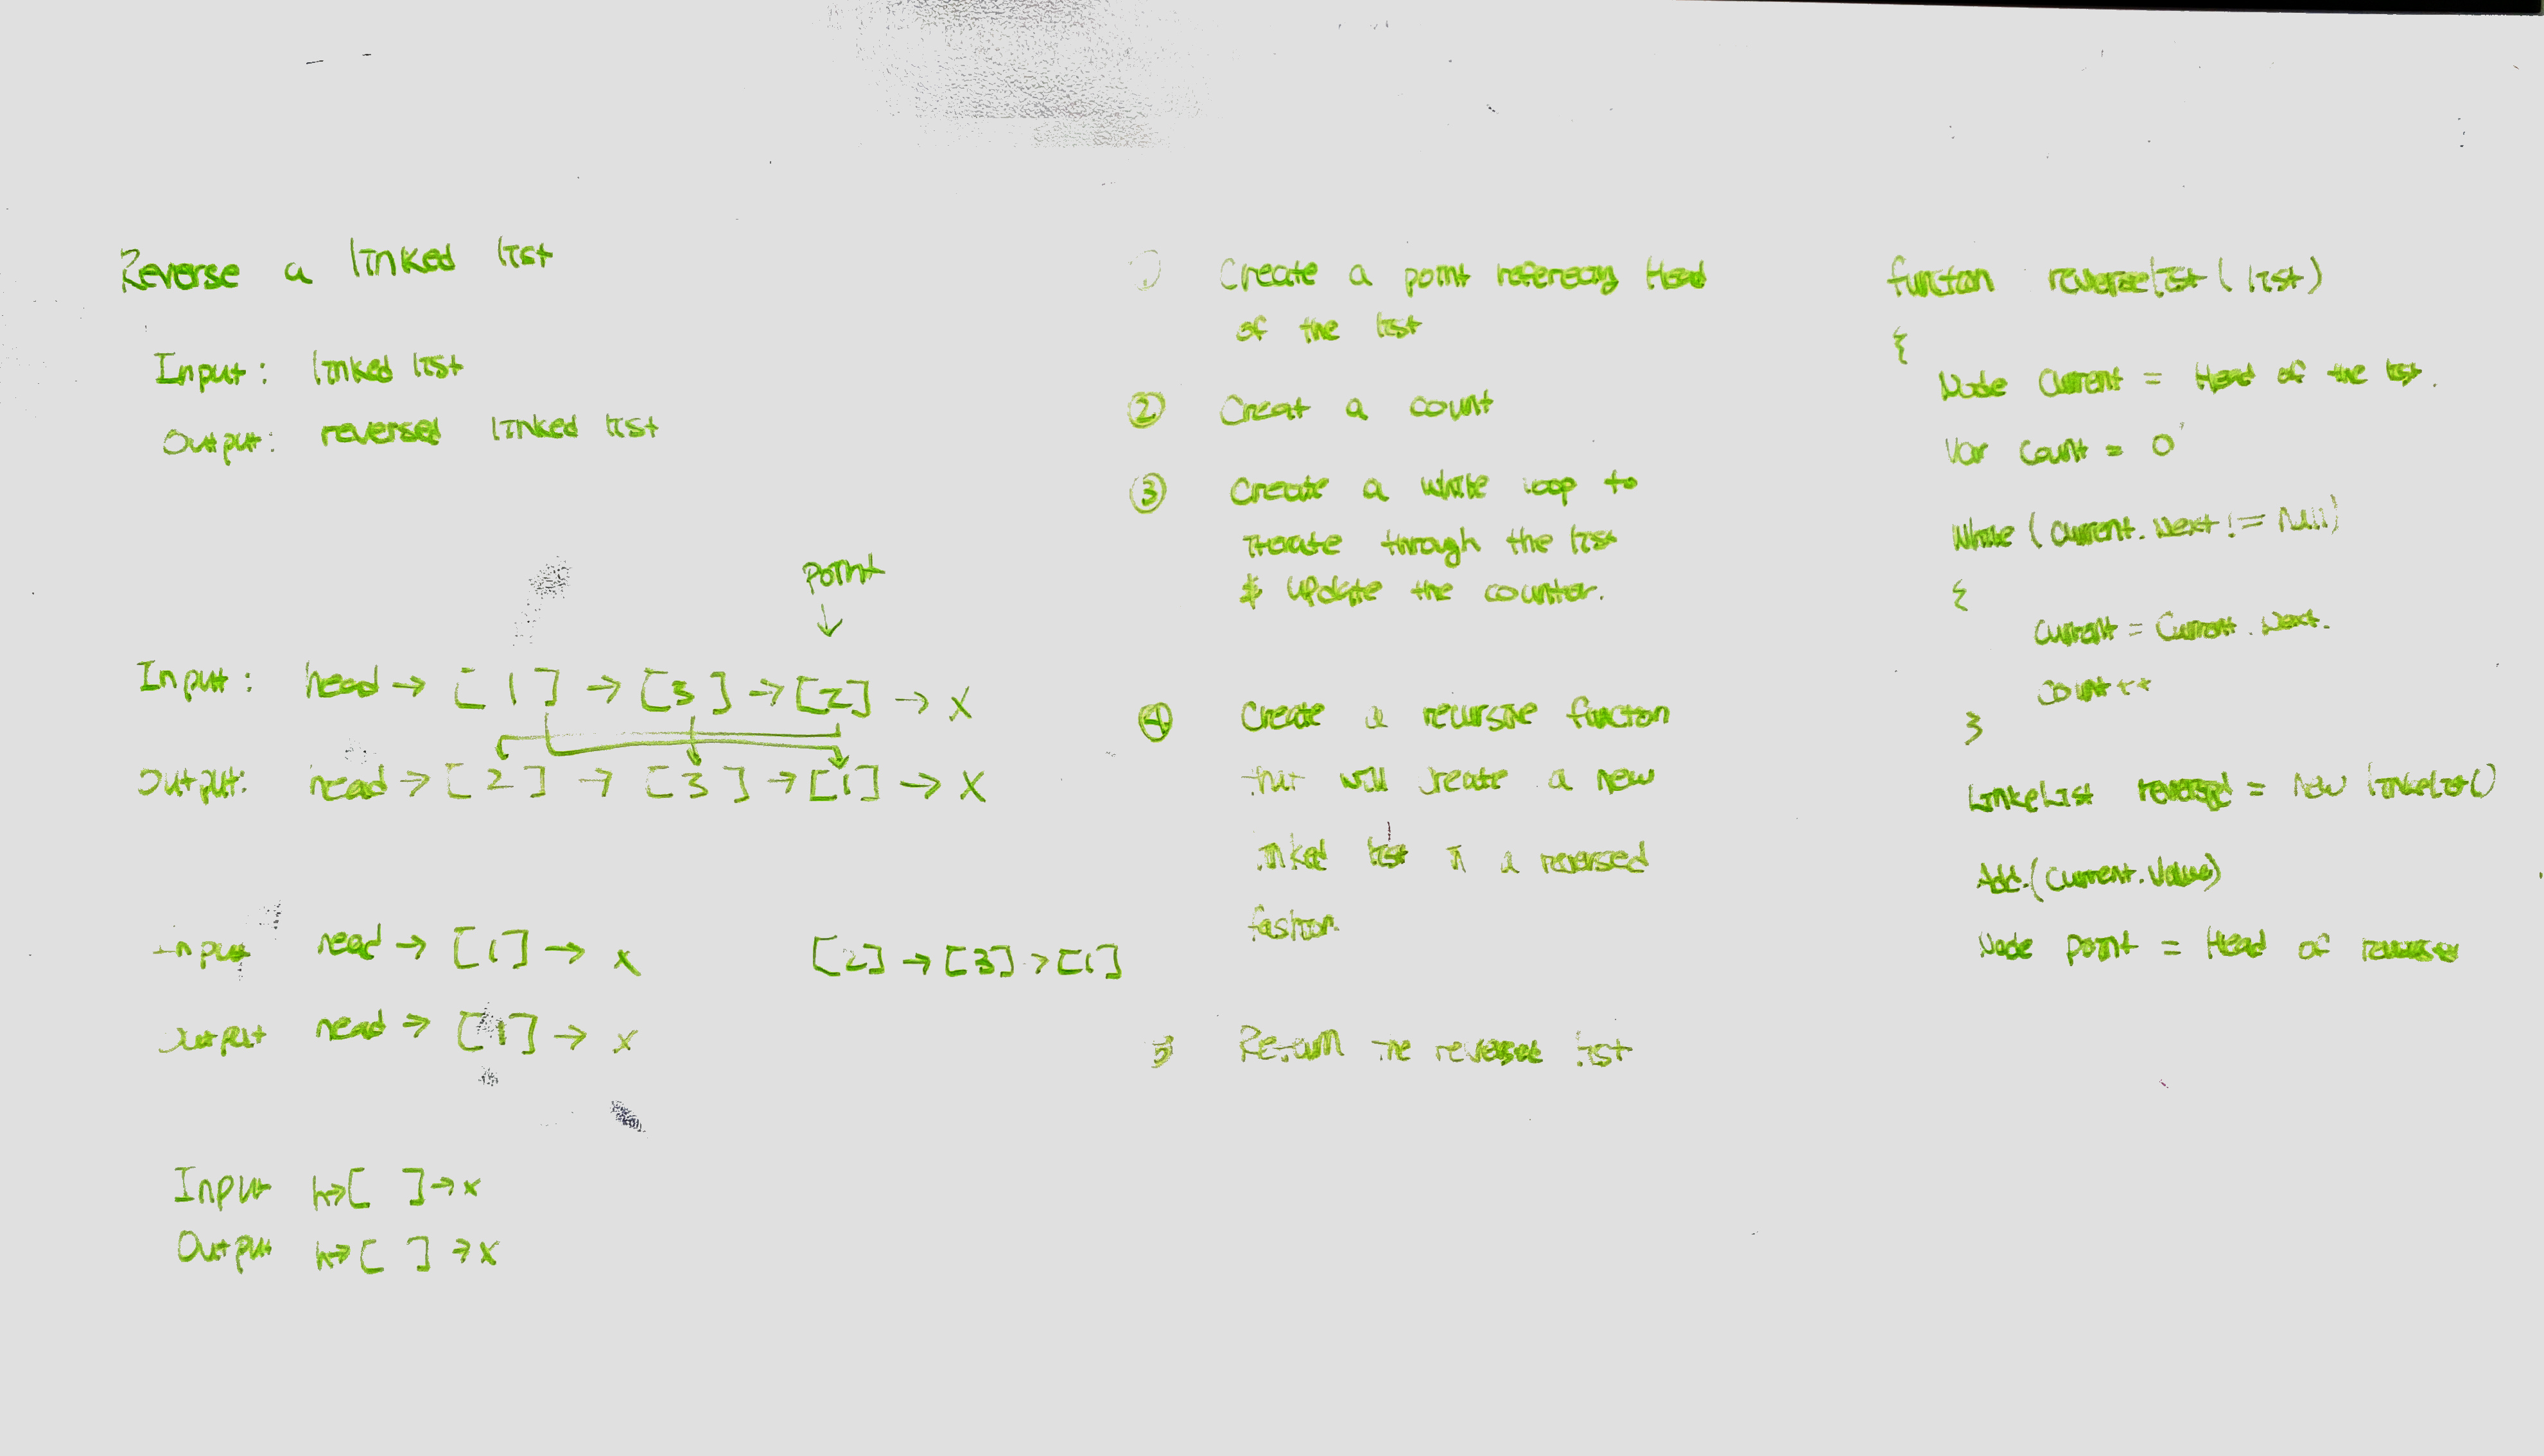 Reverse a linked list
Input: linked list
Output: reversed linked list
point
↓
Input: head → [ 1 ] → [ 3 ] → [ 2 ] → X
Output: head → [ 2 ] → [ 3 ] → [ 1 ] → X
Input head → [ 1 ] → X
[2] → [3] → [1]
Output head → [ 1 ] → X
Input h→[ ]→X
Output h→[ ]→X
① Create a point referecing Head
of the list
② Creat a count
③ Create a while loop to
iterate through the list
& update the counter.
④ Create a recursive function
that will create a new
linked list in a reversed
fashion.
5 Return the reversed list
function reverselist(list)
{
Node Current = Head of the list.
Var Count = 0
While (Current.Next != Null)
{
Current = Current.Next.
Count++
}
LinkeList reversed = New linkelist()
Add.(Current.Value)
Node point = Head of